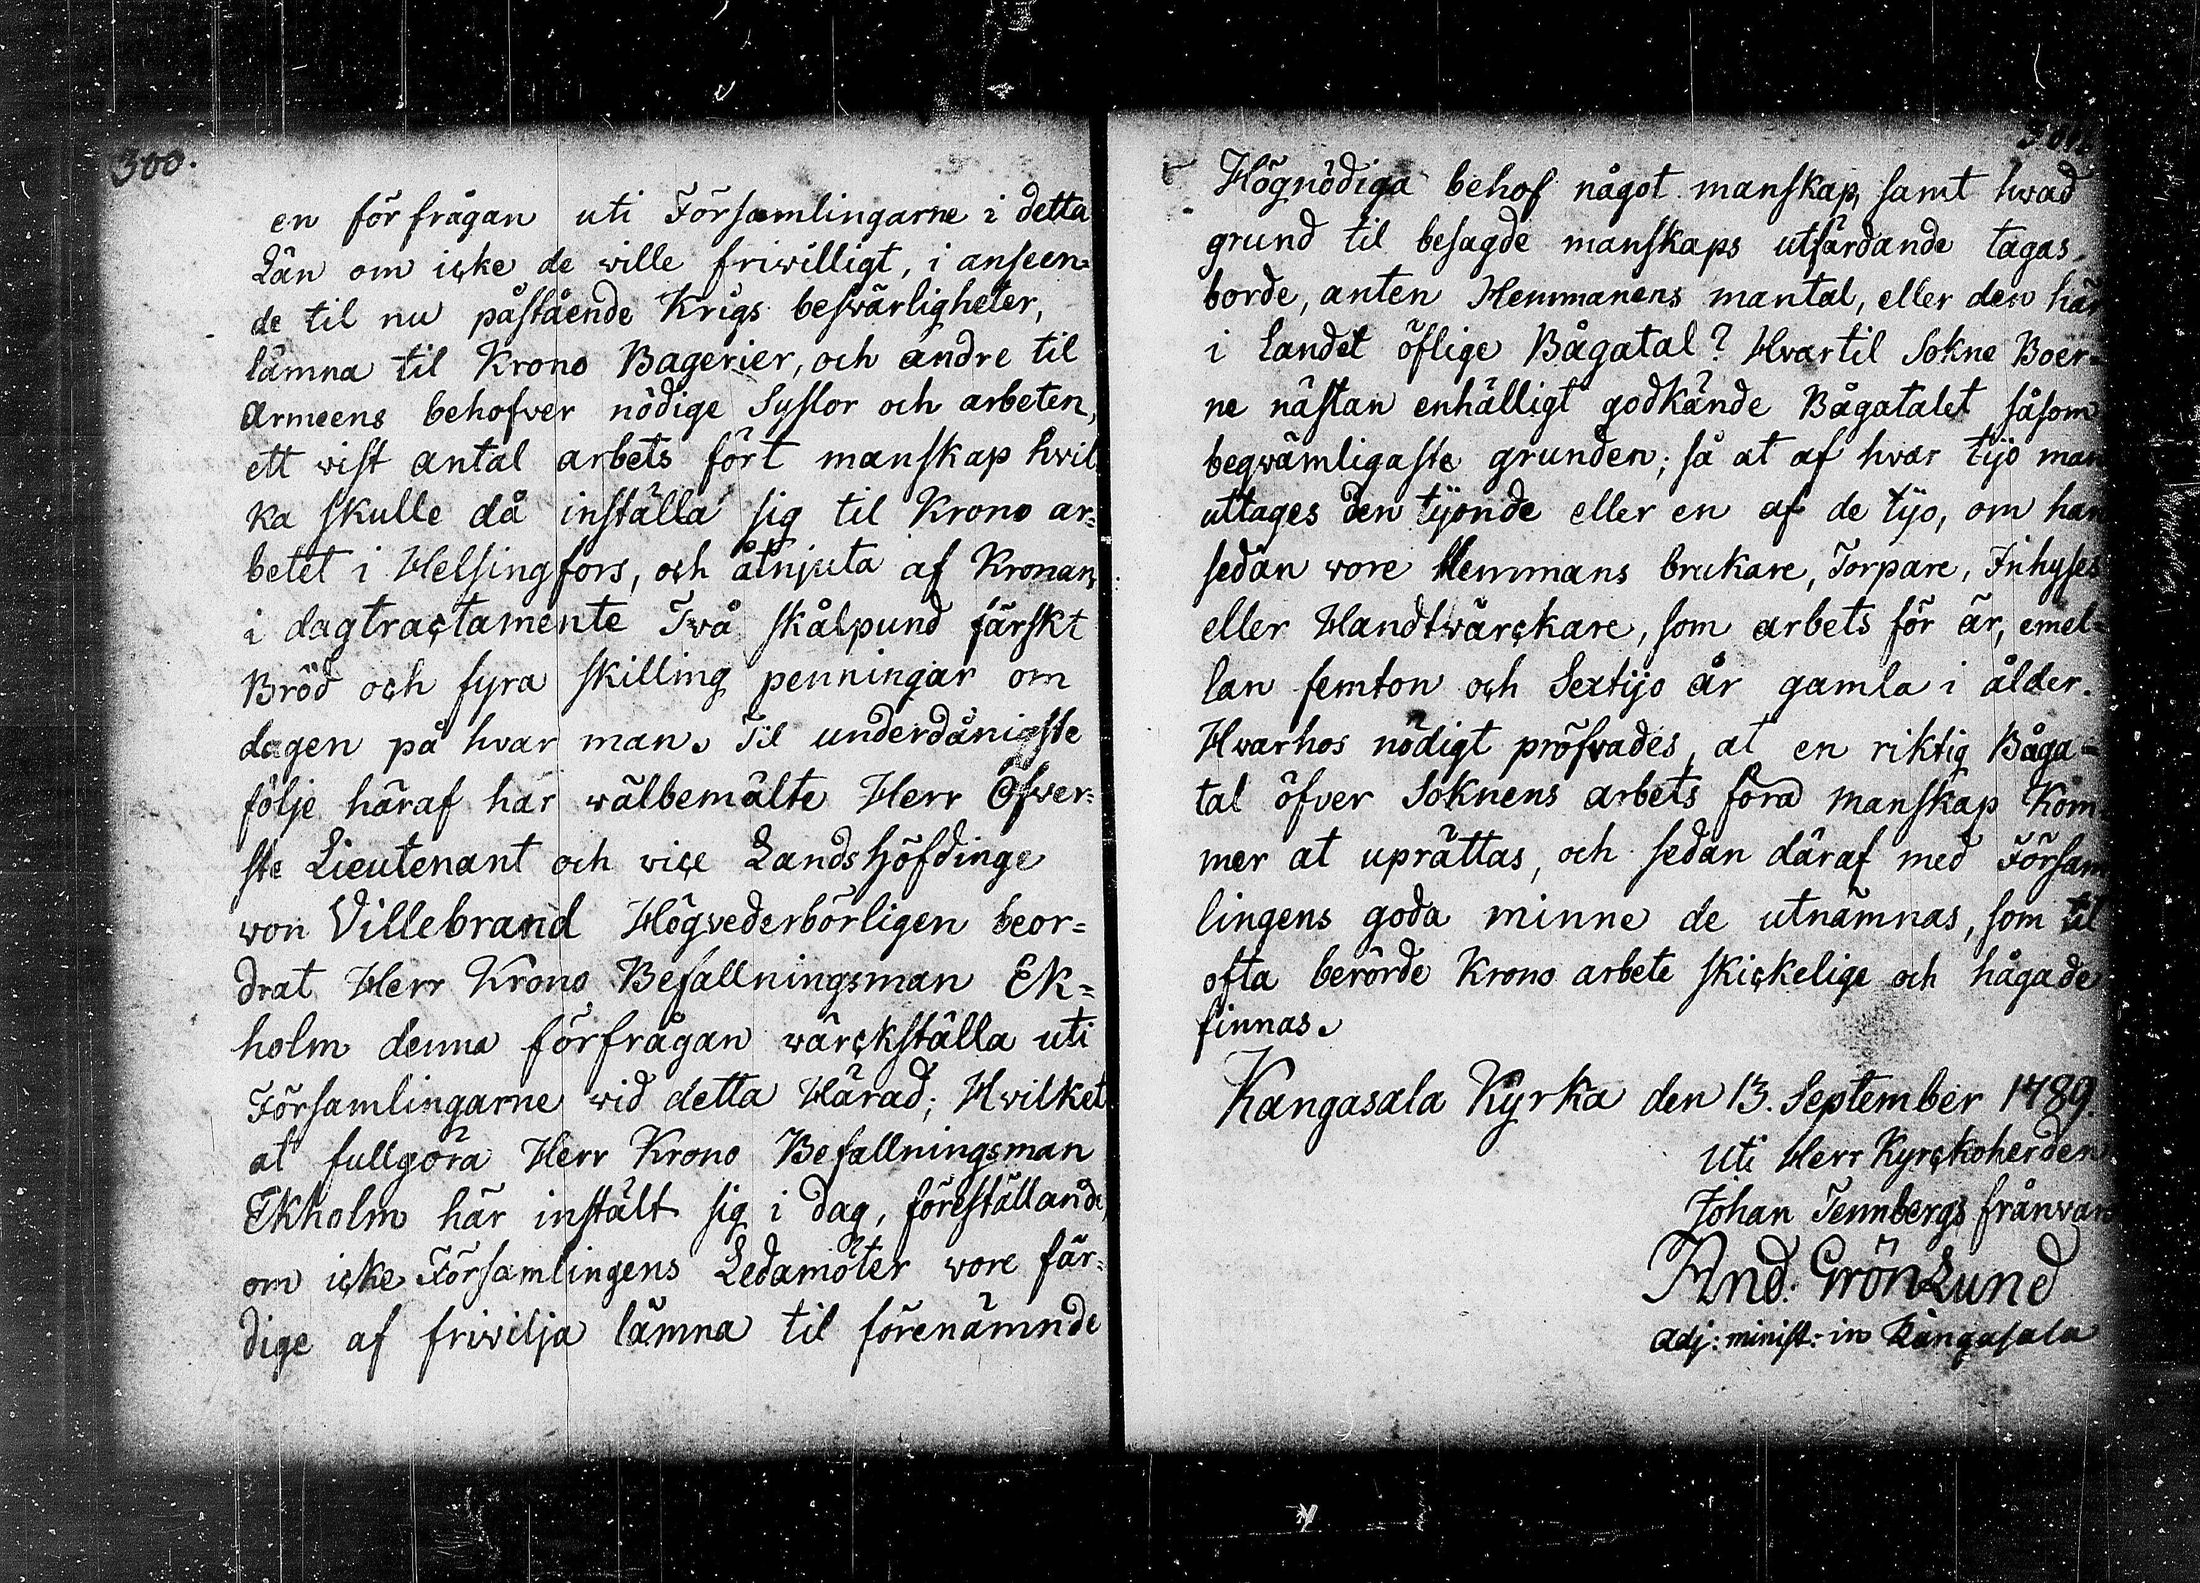 300.
en för frågan uti Församlingarne i detta
Län om icke de wille friwilligt, i anseen=
de til nu påstående Krigs beswärligheter,
lämna til Krono Bagerier, och andre til
Armeens behofver nödige Syslor och arbeten,
ett wist antal arbets fört manskap hvil
ka skulle då inställa sig til Krono ar=
betet i Helsingfors, och åtnjuta af Kronan,
i dagtractamente Två skålpund färskt
Bröd och fyra skilling penningar om
dagen på hvar man. Til underdånigste
följe häraf har wälbemälte Herr Öfver=
ste Lieutenant och vice Landshöfdinge
won Villebrand Högvederbörligen beor=
drat Herr Krono Befallningsman Ek=
holm denna förfrågan wärckställa uti
Församlingarne wid detta Härad; Hvilket
at fullgöra Herr Krono Befallningsman
Ekholm här instält sig i dag, föreställande,
om icke Församlingens Ledamöter vore fär=
dige af friwilja lämna til förenämnde
301
Högnödiga behof något manskap, samt hwad
grund til besagde manskaps utfärdande tagas
borde, anten Hemmanens mantal, eller den här
i landet öflige Bågatal? Hvartil Sokne Boer=
ne nästan enhälligt godkände Bågatalet såsom
beqwämligaste grunden; så at af hvar tijo man
uttages den tijonde eller en af de tijo, om han
sedan wore Hemmans brukare, Torpare, Inhyses
eller Handtwärckare, som arbets för är, emel=
lan femton och Sextijo år gamla i ålder.
Hvarhos nödigt pröfvades, at en riktig Båga=
tal öfver Soknens arbets föra manskap kom
mer at uprättas, och sedan däraf med Försam
lingens goda minne de utnämnas, som til
ofta berörde Krono arbete skickelige och hågade
finnas.
Kangasala Kyrka den 13. September 1789.
Uti Herr Kyrckoherden
Johan Tennbergs frånvaro
And: GrönLund
adj: minist: in Kangasala